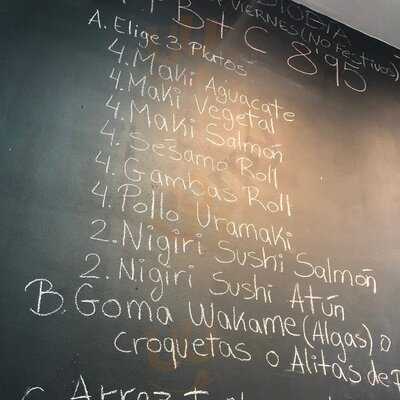 VIERNES (No Festivos)
PB+C 8'95
A. Elige 3 Platos
4. Maki Aguacate
4. Maki Vegetal
4. Maki Salmón
4. Sésamo Roll
4. Gambas Roll
4. Pollo Uramaki
2. Nigiri Sushi Salmón
2. Nigiri Sushi Atún
B. Goma Wakame (Algas) o
croquetas o Alitas de P
C. Arroz